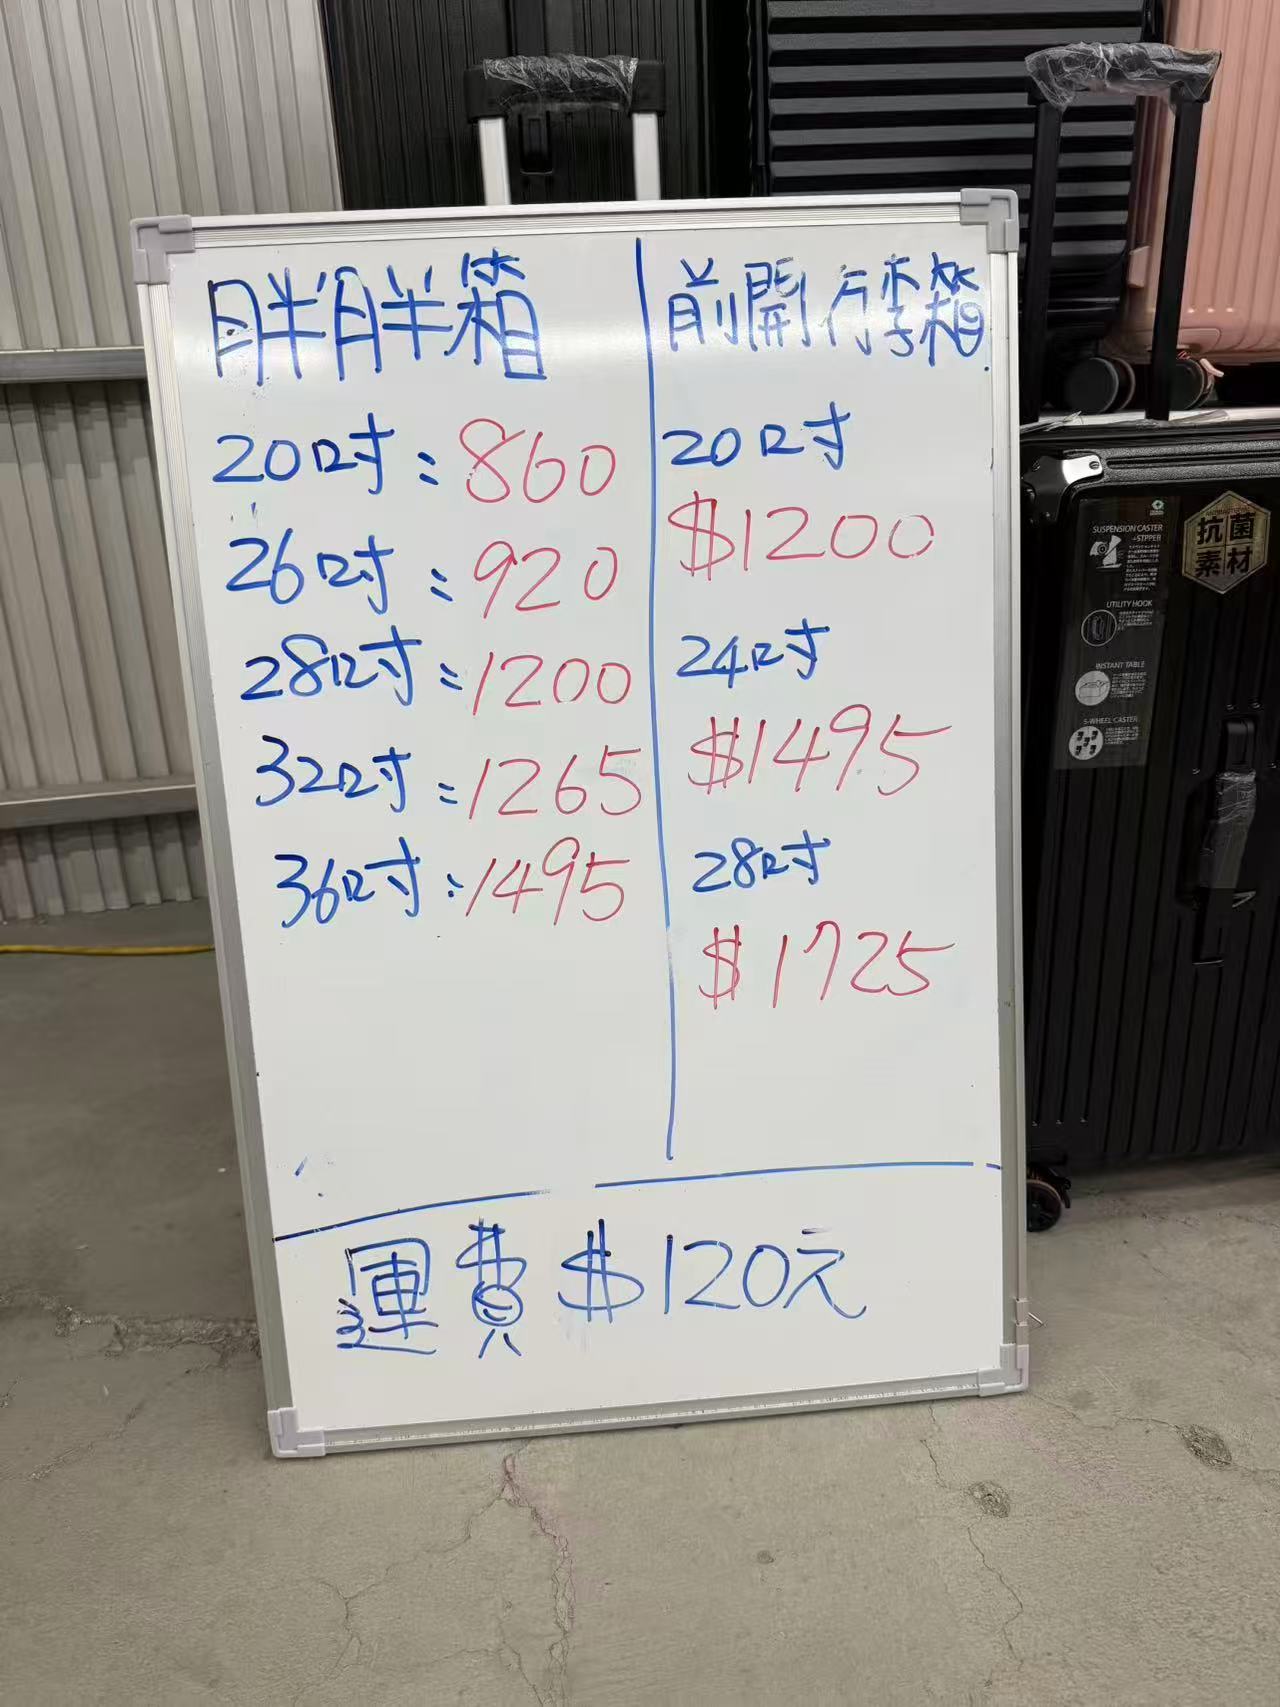 胖胖箱
20吋:860
26吋:920
28吋:1200
32吋:1265
36吋:1495
前開行李箱
20吋
$1200
24吋
$1495
28吋
$1725
運費$120元
SUSPENSION CASTER
-STPPER
UTILITY HOOK
INSTANT TABLE
S-WHEEL CASTER
抗菌
素材